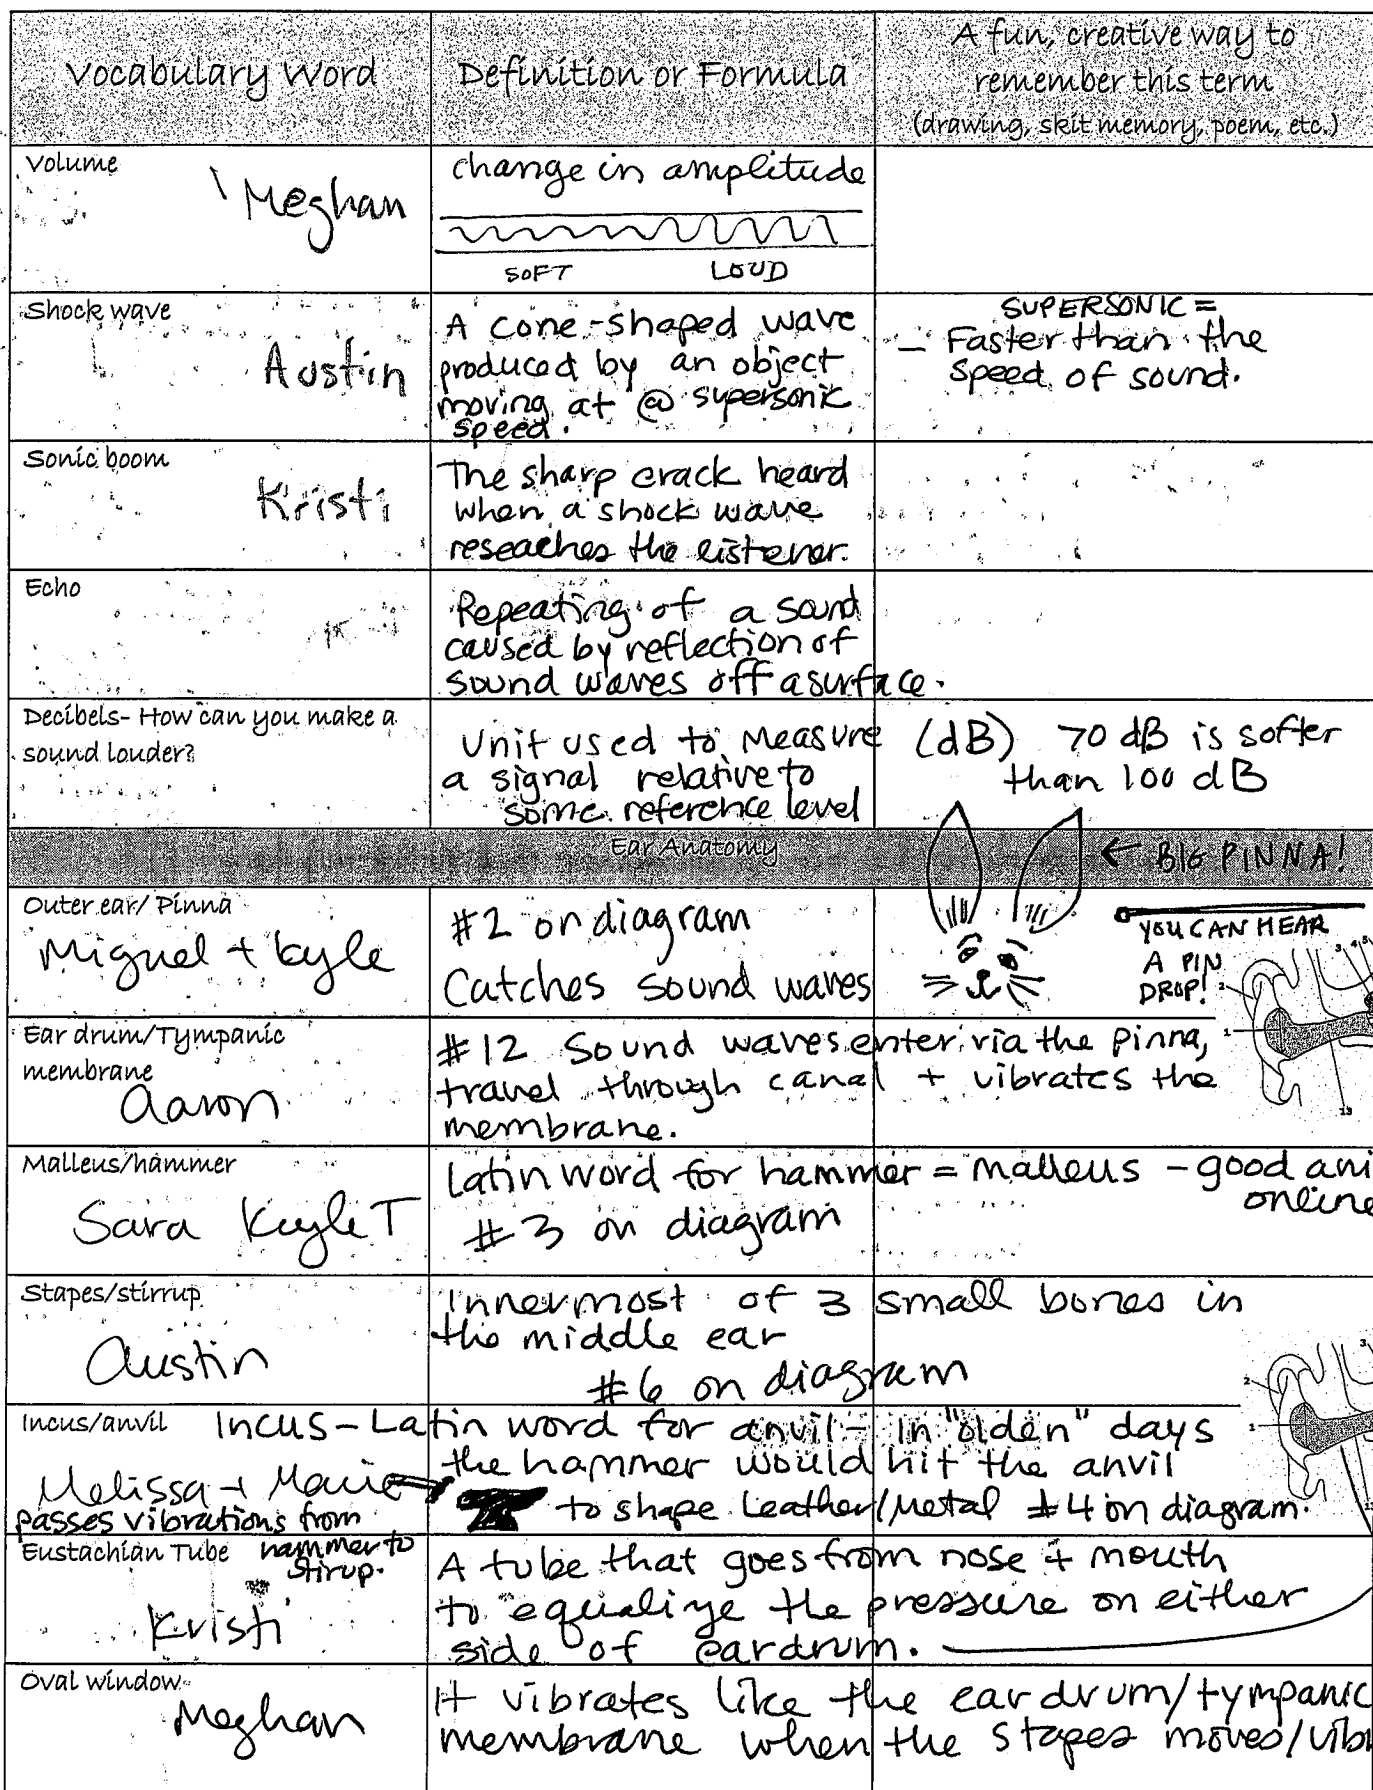 Vocabulary Word
Definition or Formula
A fun, creative way to
remember this term
(drawing, skit memory, poem, etc.)
Volume
Meghan
change in amplitude
SOFT LOUD
Shock wave
Austin
A cone-shaped wave
produced by an object
moving at @ supersonic
speed.
SUPERSONIC =
- Faster than the
speed of sound.
Sonic boom
Kristi
The sharp crack heard
when a shock wave
reseaches the listener.
Echo
Repeating of a sound
caused by reflection of
sound waves off a surface.
Decibels- How can you make a
sound louder?
Unit used to measure
a signal relative to
some reference level
(dB) 70 dB is softer
than 100 dB
Ear Anatomy
← BIG PINNA!
Outer ear/ Pinna
Miguel + Kyle
#2 on diagram
Catches sound waves
YOU CAN HEAR
A PIN
DROP!
2
1
3 4 5
13
Ear drum/Tympanic
membrane
Aaron
#12 Sound waves enter via the pinna,
travel through canal + vibrates the
membrane.
Malleus/hammer
Sara Kyle T
Latin word for hammer = malleus - good ani
online
#3 on diagram
Stapes/stirrup
Austin
Innermost of 3 small bones in
the middle ear
#6 on diagram
2
3
1
Incus/anvil
Incus - Latin word for anvil - In "olden" days
the hammer would hit the anvil
to shape Leather/Metal #4 on diagram.
Melissa + Mario
passes vibrations from
hammer to
stirup.
Eustachian Tube
Kristi
A tube that goes from nose + mouth
to equalize the pressure on either
side of eardrum.
Oval window
Meghan
It vibrates like the ear drum/tympanic
membrane when the stapes moves/vib